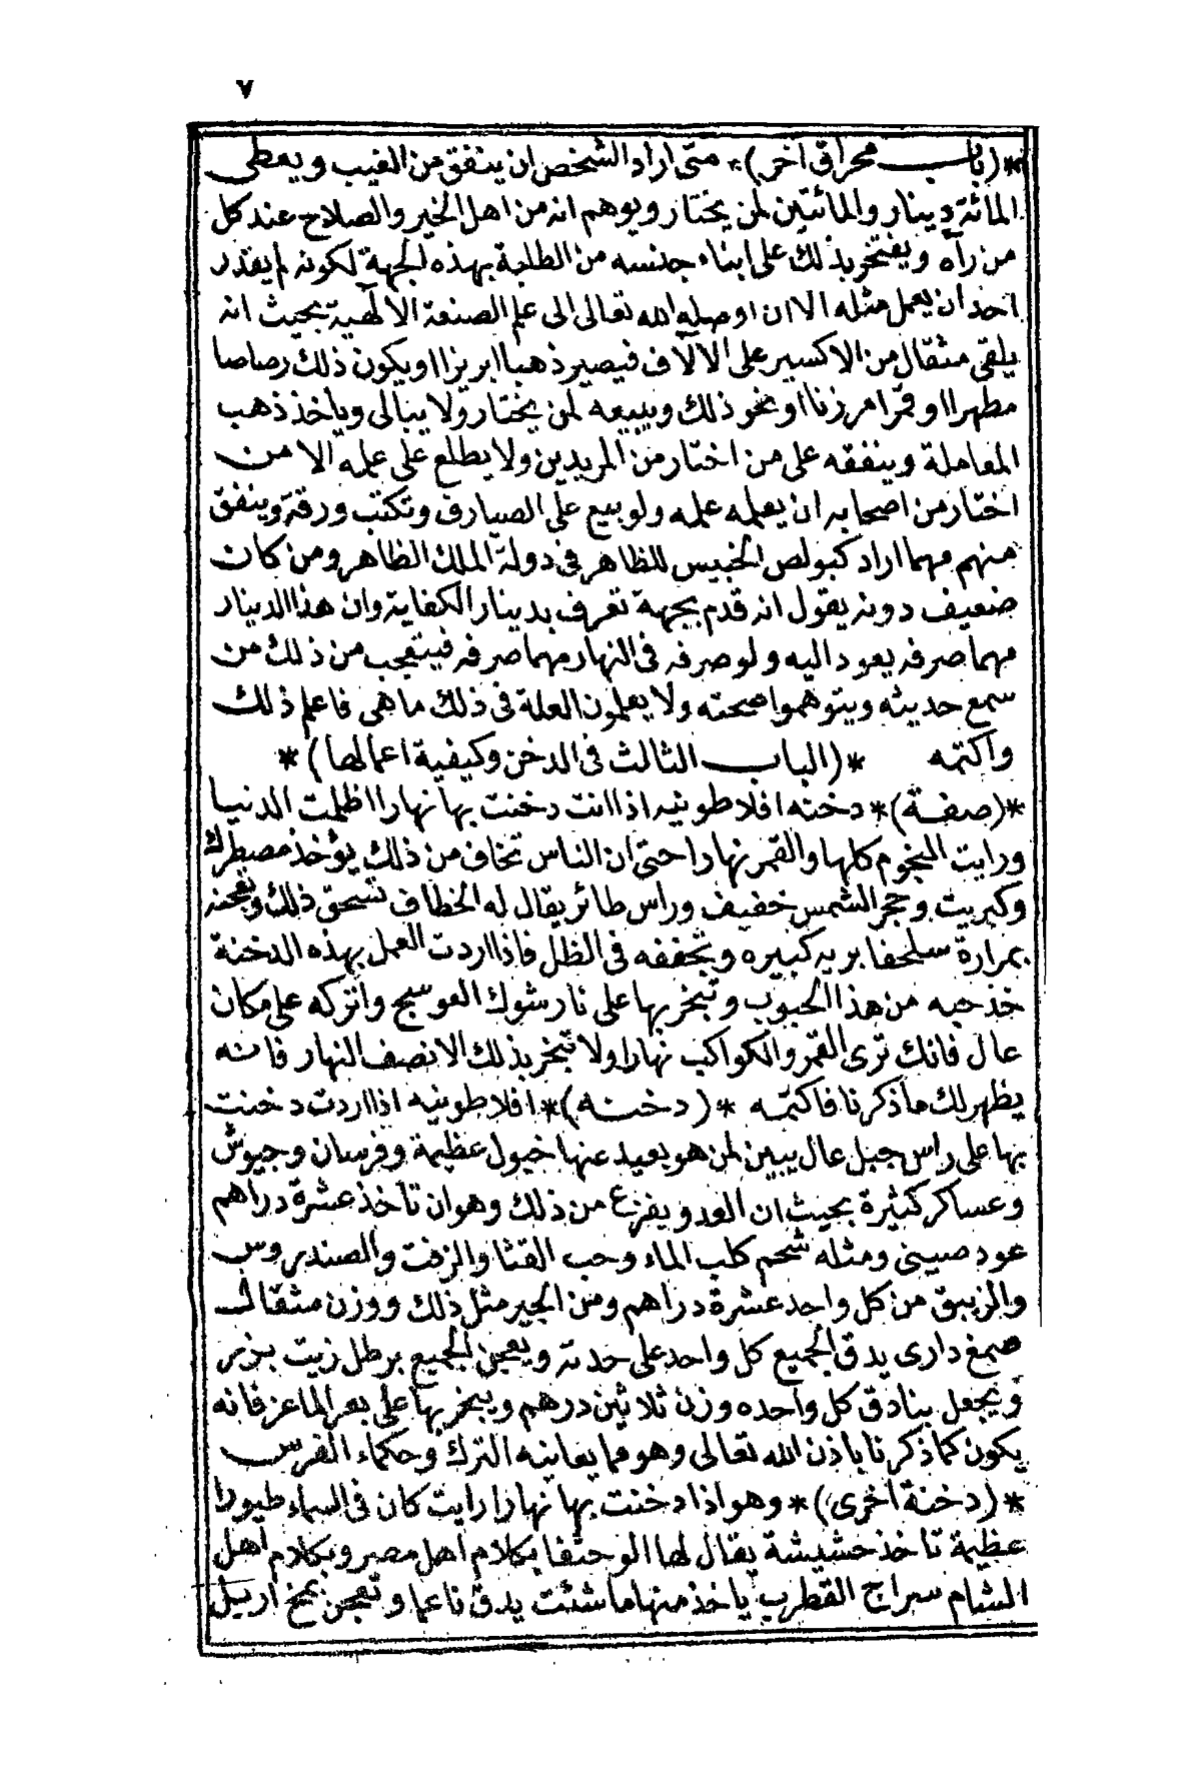 ٧
*(باب محراق اخر)* متى اراد الشخص ان ينفق من الغيب ويعطى
المائة دينار والمائتين لمن يختار ويوهم انه من اهل الخير والصلاح عند كل
من رآه ويفتخر بذلك على ابناء جنسه من الطلبة بهذه الجهة لكونه لم يقدر
احد ان يعمل مثله الا ان اوصله الله تعالى الى علم الصنعة الالهية بحيث انه
يلقى مثقال من الاكسير على الالاف فيصير ذهبا ابريزا او يكون ذلك رصاصا
مطهرا او قمرا مرزنا او نحو ذلك ويبيعه لمن يختار ولا يبالى وياخذ ذهب
المعاملة وينفقه على من اختار من المريدين ولا يطلع على عمله الا من
اختار من اصحابه ان يعمله عمله ولو بيع على الصيارف وتكتب ورقة وينفق
منهم مهما اراد كبولص الخبيس للظاهر فى دولة الملك الظاهر ومن كان
ضعيف دونه يقول انه قدم بجهة تعرف بدينار الكفاية وان هذا الدينار
مهما صرفه يعود اليه ولو صرفه فى النهار مهما صرفه فيتعجب من ذلك من
سمع حديثه ويتوهموا صحته ولا يعلمون العلة فى ذلك ما هى فاعلم ذلك
واكتمه *(الباب الثالث فى الدخن وكيفية اعمالها)*
*(صفة)* دخنه افلاطونيه اذا انت دخنت بها نهارا اظلمت الدنيا
ورايت النجوم كلها والقمر نهارا حتى ان الناس تخاف من ذلك يؤخذ مصطرك
وكبريت وحجر الشمس خفيف وراس طائر يقال له الخطاف تسحق ذلك وتعجنه
بمرارة سلحفا بريه كبيره وتجففه فى الظل فاذا اردت العمل بهذه الدخنة
خذ حبه من هذا الحبوب وتبخر بها على نار شوك العوسج واتركه على مكان
عال فانك ترى القمر والكواكب نهارا ولا تبخر بذلك الا نصف النهار فانه
يظهر لك ما ذكرنا فاكتمه *(دخنه)* افلاطونيه اذا اردت دخنت
بها على راس جبل عال يبين لمن هو بعيد عنها خيول عظيمة وفرسان وجيوش
وعساكر كثيرة بحيث ان العدو يفزع من ذلك وهو ان تاخذ عشرة دراهم
عود صينى ومثله شحم كلب الماء وحب القثا والزفت والصندروس
والزيبق من كل واحد عشرة دراهم ومن الجير مثل ذلك ووزن مثقال
صمغ دارى يدق الجميع كل واحد على حدته ويعجن الجميع برطل زيت بزر
ويجعل بنادق كل واحده وزن ثلاثين درهم ويبخر بها على بعر الماعز فانه
يكون كما ذكرنا باذن الله تعالى وهو مما يعاينه الترك وحكماء الفرس
*(دخنة اخرى)* وهو اذا دخنت بها نهارا رايت كان فى السماء طيورا
عظيمة تاخذ حشيشة يقال لها الوحتفا بكلام اهل مصر وبكلام اهل
الشام سراج القطرب ياخذ منها ما شئت يدق ناعما وتعجن بمخ اربيل